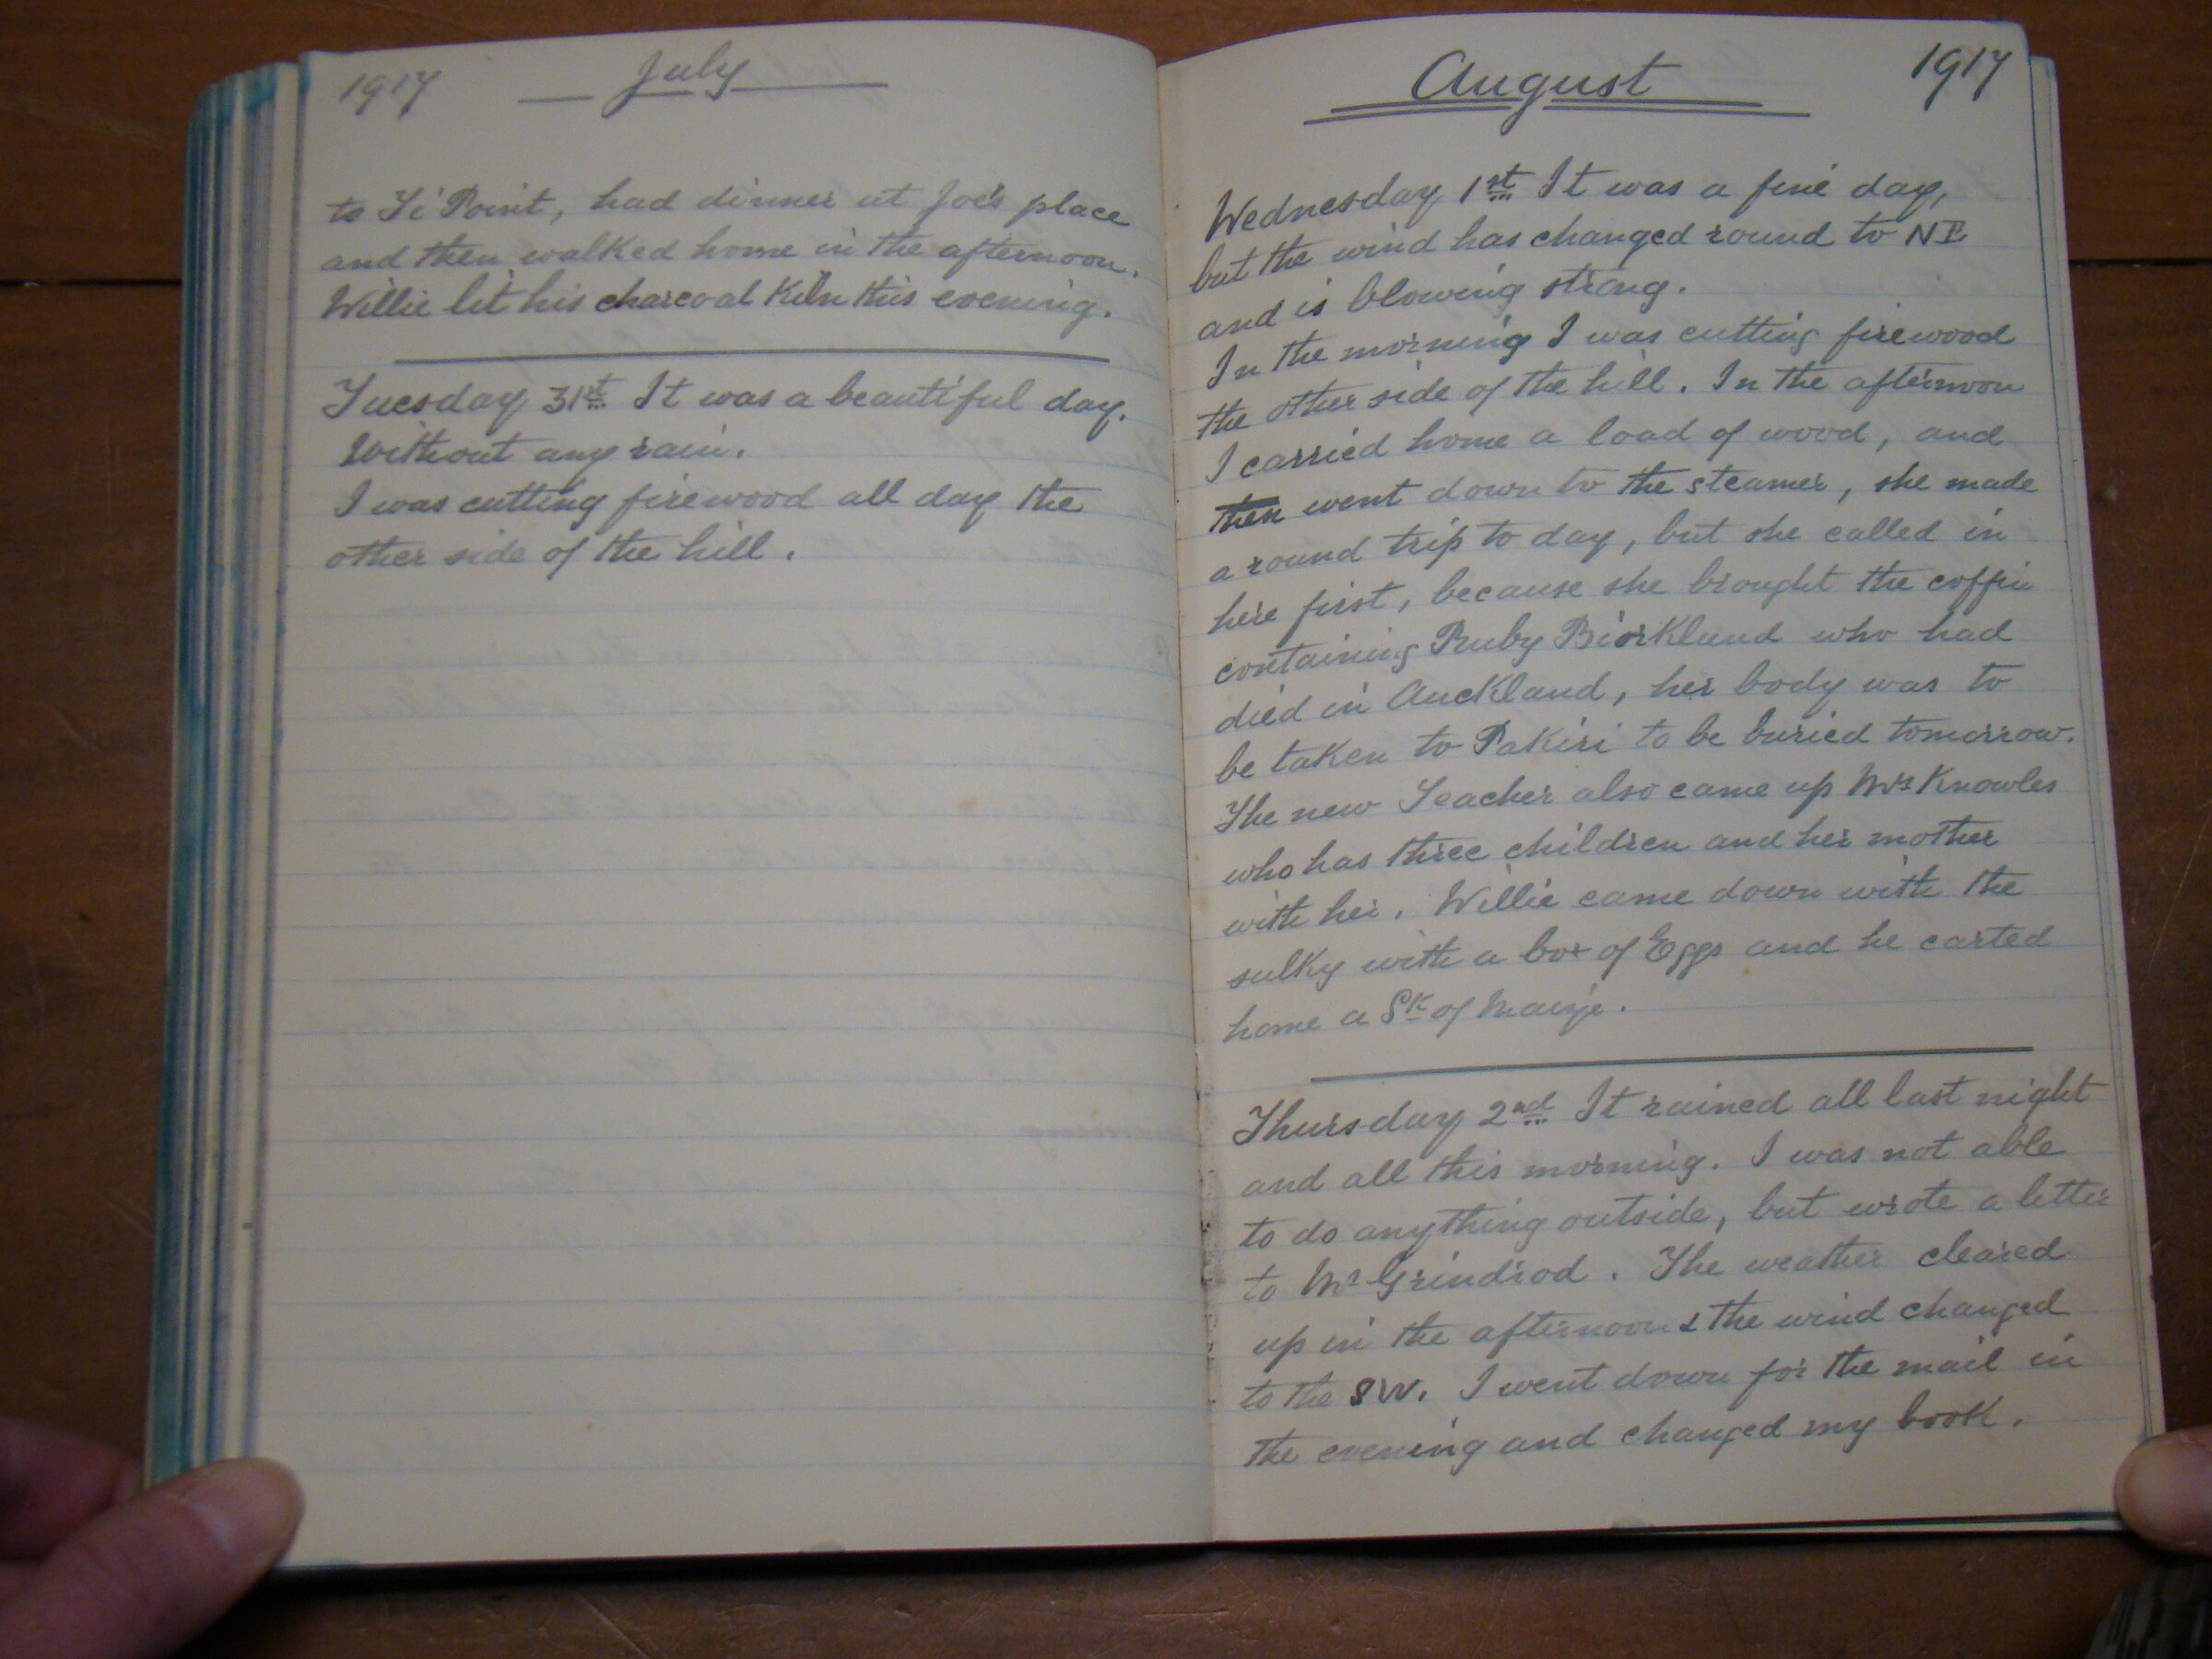 1917 July
to Ti Point, had dinner at Joe's place
and then walked home in the afternoon.
Willie lit his charcoal Kiln this evening.
Tuesday 31st It was a beautiful day.
Without any rain.
I was cutting firewood all day the
other side of the hill.
August 1917
Wednesday 1st It was a fine day,
but the wind has changed round to NE
and is blowing strong.
In the morning I was cutting firewood
the other side of the hill. In the afternoon
I carried home a load of wood, and
then went down to the steamer, she made
a round trip to day, but she called in
here first, because she brought the coffin
containing Ruby Biorkland who had
died in Auckland, her body was to
be taken to Pakiri to be buried tomorrow.
The new Teacher also came up Mrs Knowles
who has three children and her mother
with her. Willie came down with the
sulky with a box of Eggs and he carted
home a Sk of Maize.
Thursday 2nd It rained all last night
and all this morning. I was not able
to do anything outside, but wrote a letter
to Mr Grindrod. The weather cleared
up in the afternoon & the wind changed
to the SW. I went down for the mail in
the evening and changed my book.